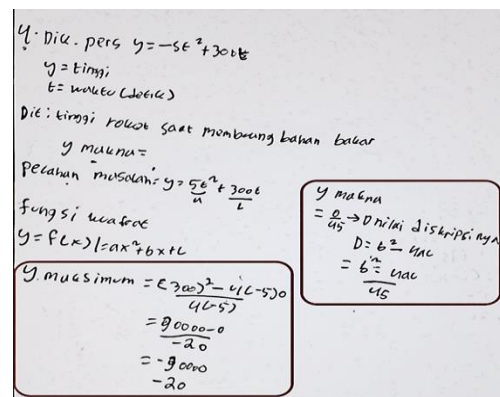 4. Dik. pers y = -5t² + 300t
y = tinggi
t = waktu (detik)
Dit : tinggi roket saat membuang bahan bakar
y makna =
Pecahan masalah : y = 5t² + 300t
fungsi kuafrat
y = f(x) = ax² + bx + c
y maksimum = (300)² - 4(-5)0
4(-5)
= 90000-0
-20
= -90000
-20
y makna
= D → D nilai diskripsinya
D = b² - 4ac
= b² - 4ac